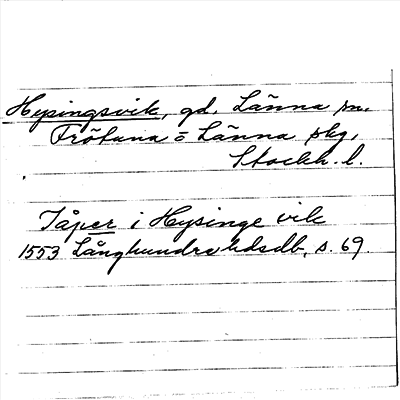 Hysingsvik, gd, Länna sn.
Frötuna o Länna skg,
Stockh. l.
Jåper i Hysinge vik
1553 Långhundra hdsdb, s. 69.